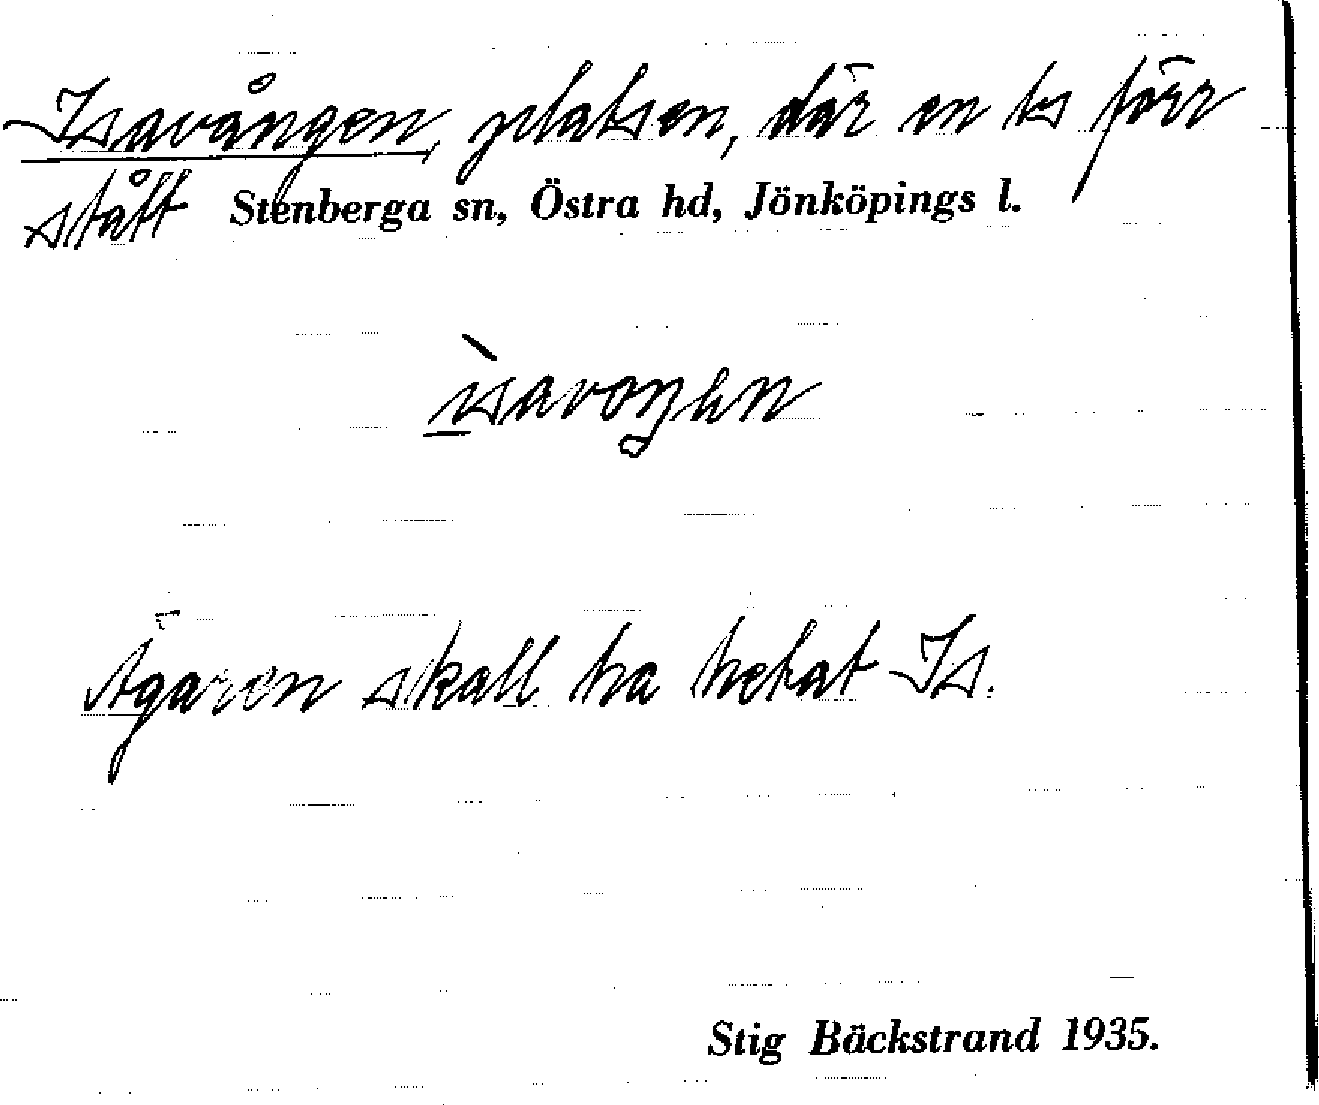 Isavången, platsen, där en ts förr
stått Stenberga sn, Östra hd, Jönköpings l.
ìsavoŋən
Ägaren skall ha hetat Is.
Stig Bäckstrand 1935.